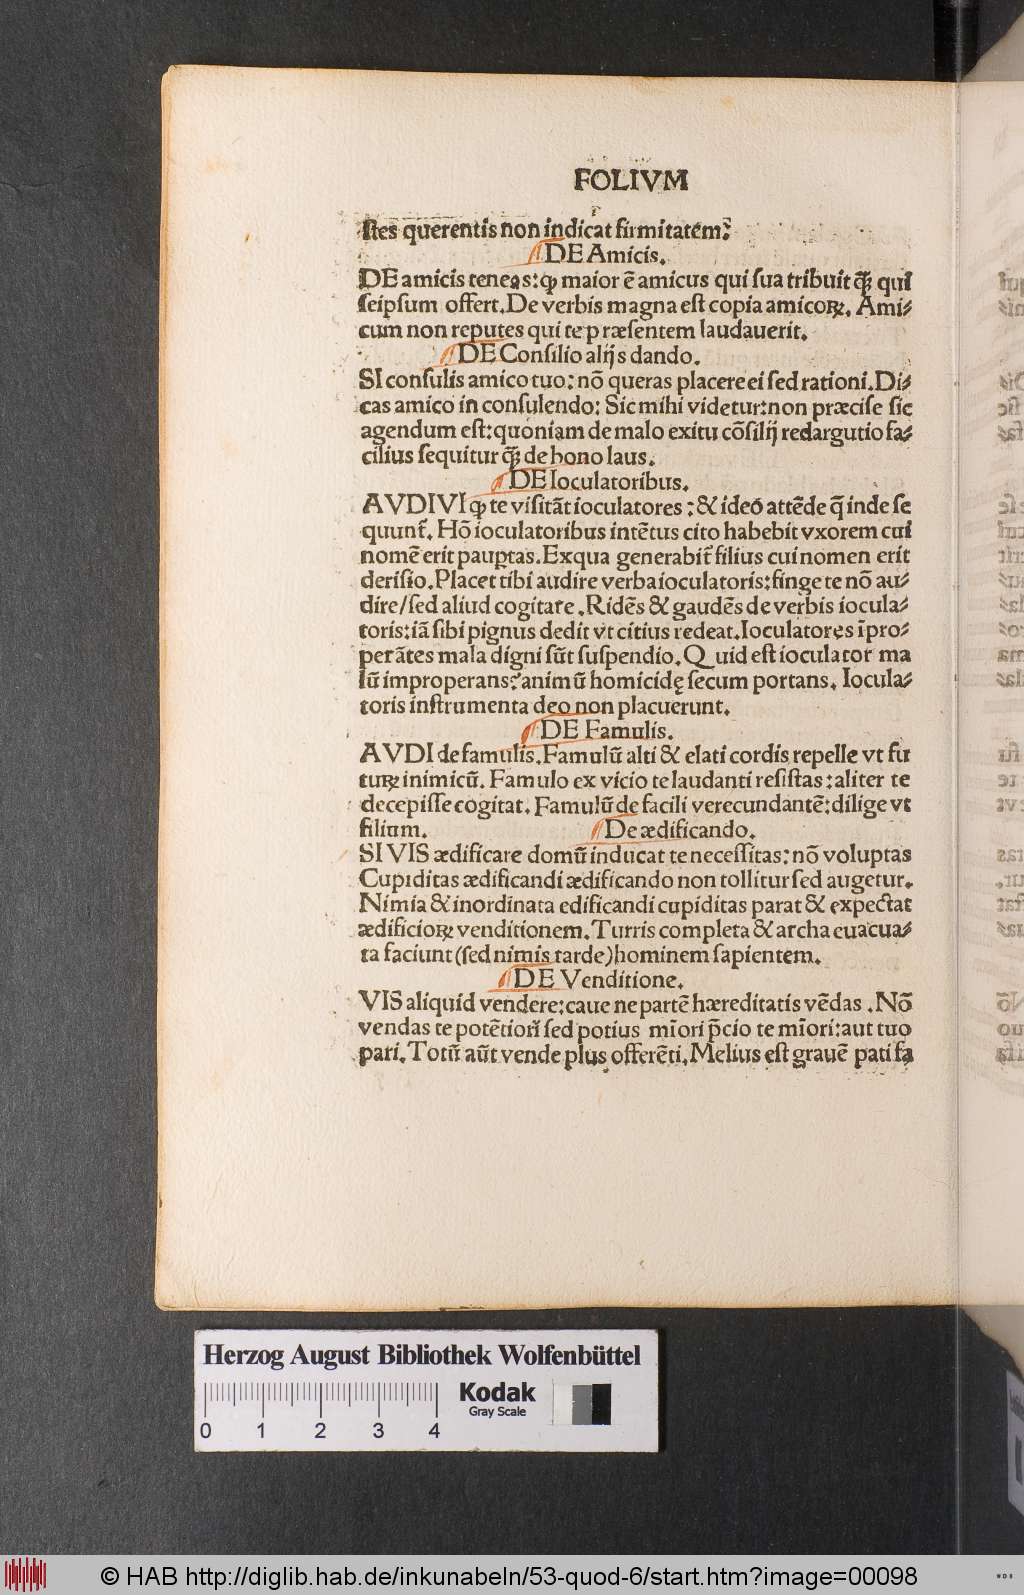 FOLIVM
ſtes querentis non indicat firmitatem:
DE Amicis.
DE amicis teneas: ꝙ maior ē amicus qui ſua tribuit ꝗ̃ꝫ qui
ſeipſum offert. De verbis magna eſt copia amicoꝝ. Ami⸗
cum non reputes qui te præſentem laudauerit.
DE Conſilio alijs dando.
SI conſulis amico tuo: nō queras placere ei ſed rationi. Di⸗
cas amico in conſulendo: Sic mihi videtur: non præciſe ſic
agendum eſt: quoniam de malo exitu cōſilij redargutio fa⸗
cilius ſequitur ꝗ̃ꝫ de bono laus.
DE Ioculatoribus.
AVDIVI ꝙ te viſitāt ioculatores: & ideo attēde q̄ inde ſe
quunt᷑. Hō ioculatoribus intētus cito habebit vxorem cui
nomē erit paup̱tas. Ex qua generabit᷑ filius cui nomen erit
deriſio. Placet tibi audire verba ioculatoris: finge te nō au⸗
dire/ ſed aliud cogitare. Ridēs & gaudēs de verbis iocula⸗
toris: iā ſibi pignus dedit vt citius redeat. Ioculatores īpro⸗
perātes mala digni ſūt ſuſpendio. Quid eſt ioculator ma
lū improperans? animū homicidę ſecum portans. Iocula⸗
toris inſtrumenta deo non placuerunt.
DE Famulis.
AVDI de famulis. Famulū alti & elati cordis repelle vt fu
tuꝝ inimicū. Famulo ex vicio te laudanti reſiſtas: aliter te
decepiſſe cogitat. Famulū de facili verecundantē: dilige vt
filium. De ædificando.
SI VIS ædificare domū inducat te neceſſitas: nō voluptas
Cupiditas ædificandi ædificando non tollitur ſed augetur.
Nimia & inordinata edificandi cupiditas parat & expectat
ædificioꝝ venditionem. Turris completa & archa euacua⸗
ta faciunt (ſed nimis tarde) hominem ſapientem.
DE Venditione.
VIS aliquid vendere: caue ne partē hæreditatis vēdas. Nō
vendas te potētiori ſed potius mīori p̄cio te mīori: aut tuo
pari. Totū aūt vende plus offerēti. Melius eſt grauē pati fa
Herzog August Bibliothek Wolfenbüttel
Kodak
Gray Scale
0 1 2 3 4
© HAB http://diglib.hab.de/inkunabeln/53-quod-6/start.htm?image=00098